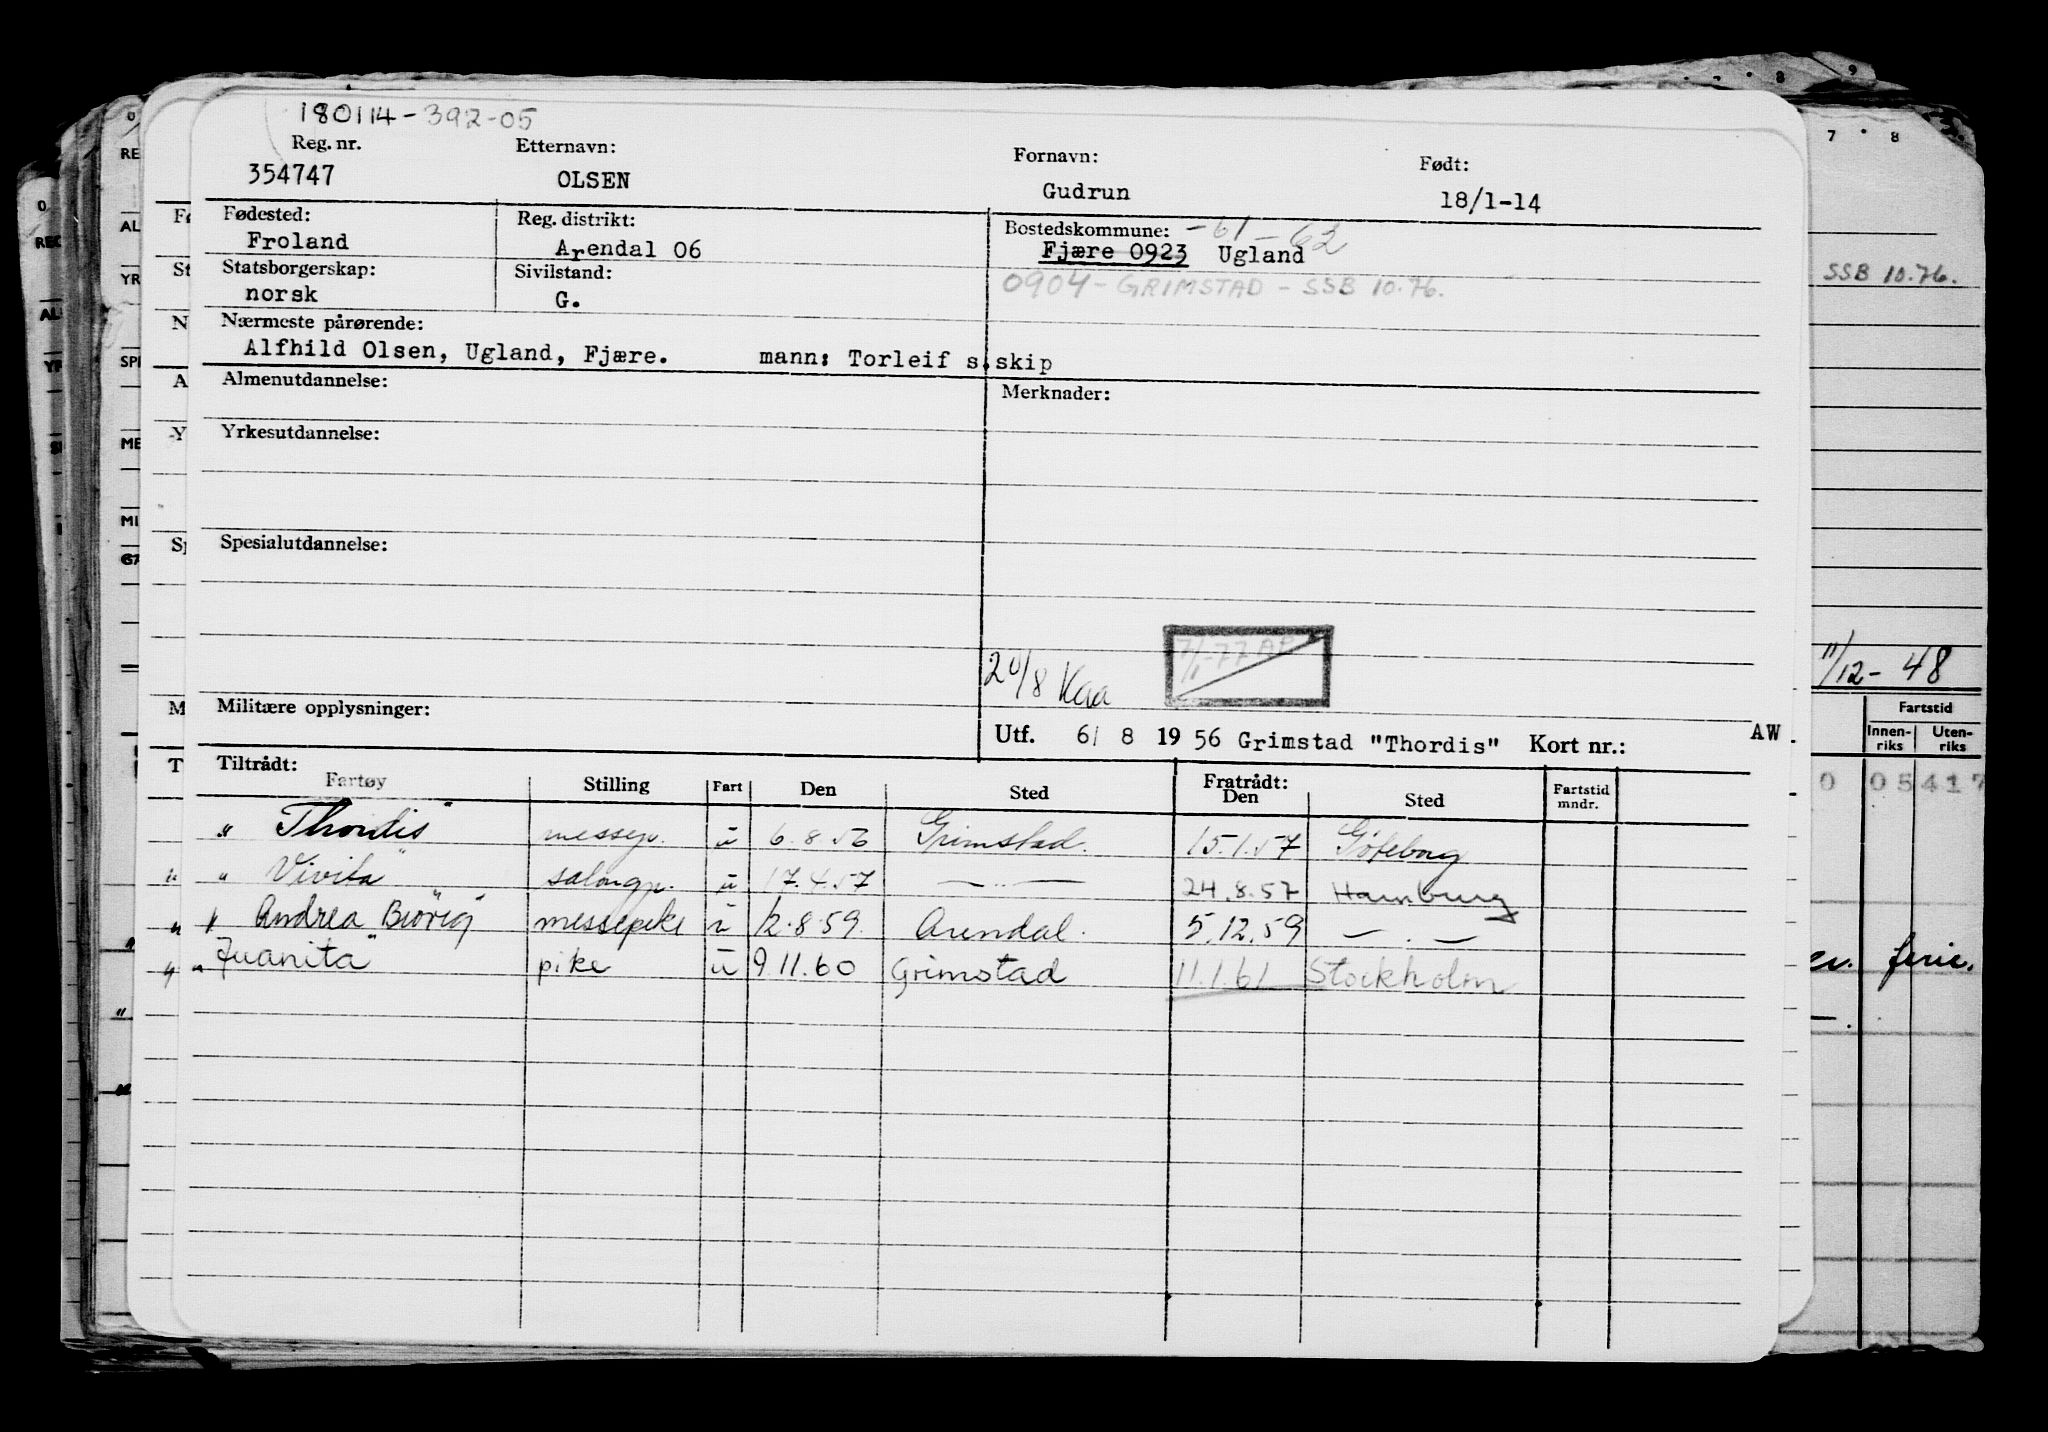 180114-392-05
Reg. nr. Etternavn: Fornavn: Født:
354747 OLSEN Gudrun 18/1-14
Fødested: Reg. distrikt: Bostedskommune: -61-62
Froland Arendal 06 Fjære 0923 Ugland
Statsborgerskap: Sivilstand: 0904-GRIMSTAD-SSB 10.76.
norsk G.
Nærmeste pårørende:
Alfhild Olsen, Ugland, Fjære. mann: Torleif s.skip
Almenutdannelse: Merknader:
Yrkesutdannelse:
Spesialutdannelse:
20/8 Kaa 7/1-77 AP
Militære opplysninger:
Utf. 6/ 8 19 56 Grimstad "Thordis" Kort nr.: AW
Tiltrådt: Fratrådt:
Fartøy Stilling Fart Den Sted Den Sted Fartstid mndr.
" Thordis" messep. u 6.8.56 Grimstad. 15.1.57 Göteborg
" Vivita" salongp. u 17.4.57 — " — 24.8.57 Hamburg
" Andrea Brøvig" messepike u 12.8.59. Arendal. 5.12.59 — . —
" Juanita" pike u 9.11.60 Grimstad 11.1.61 Stockholm
7 8
SSB 10.76.
11/12-48
Fartstid
Innen-riks Uten-riks
0 05417
ferie.